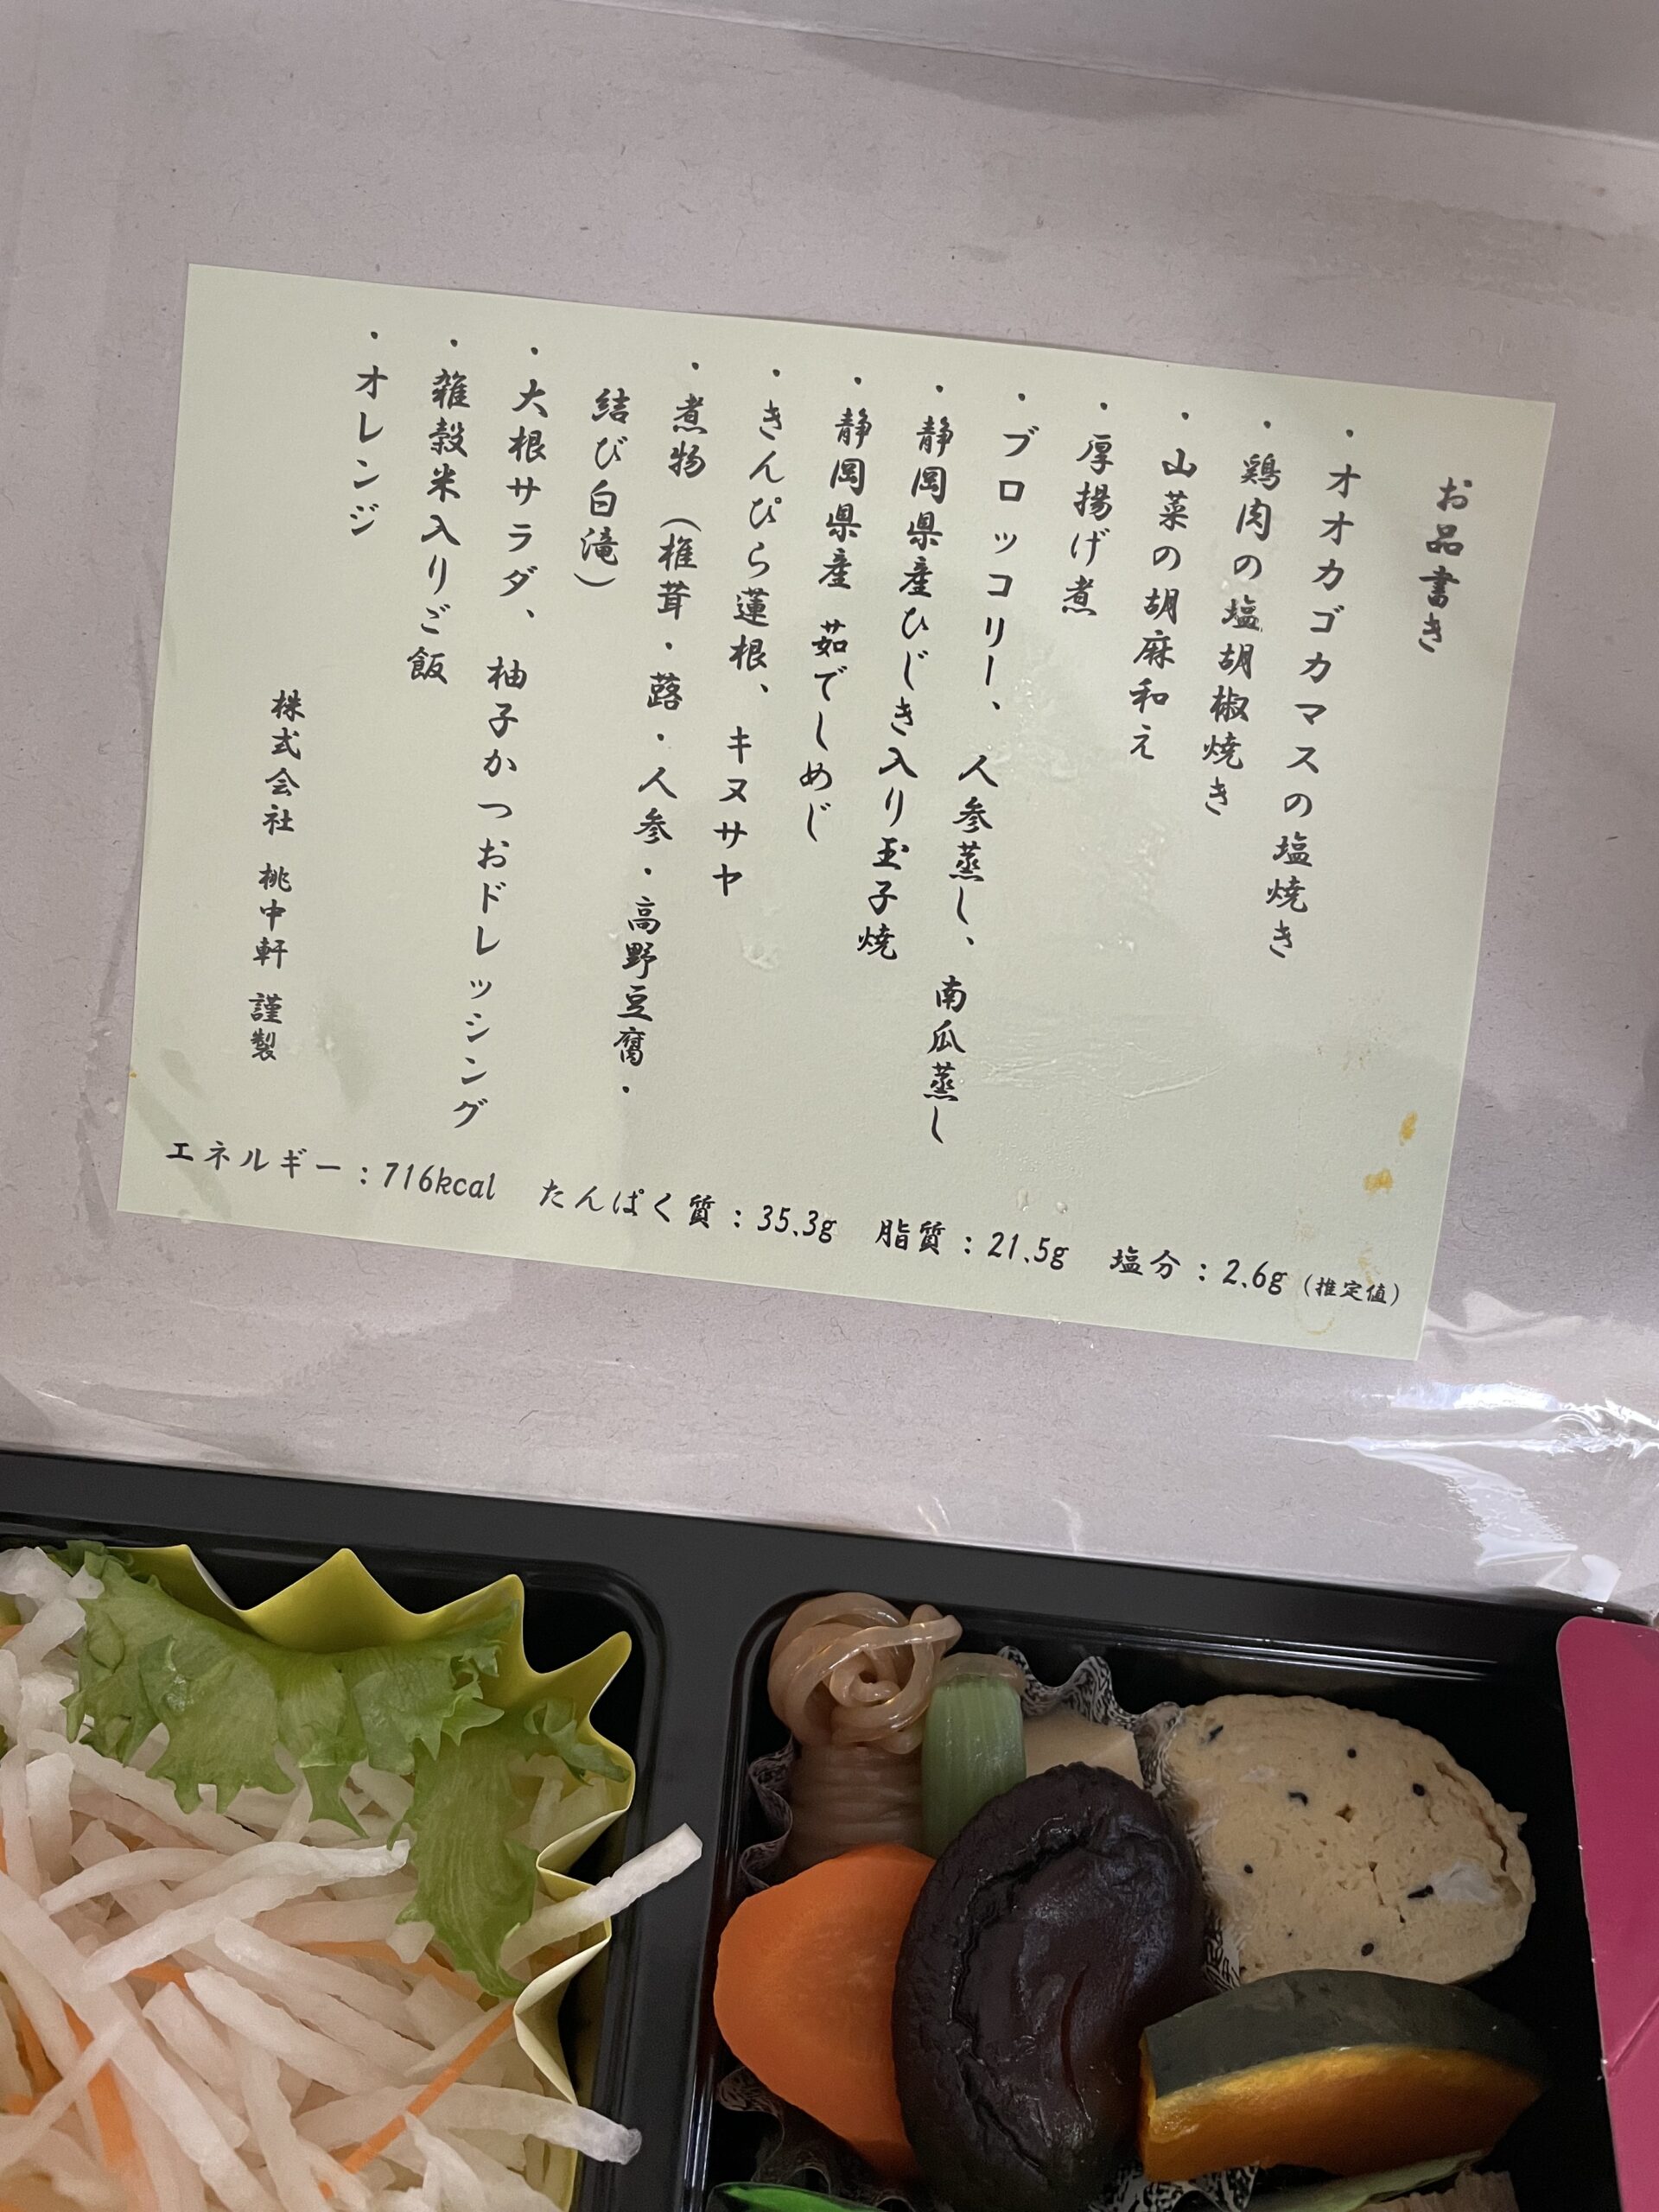 お品書き
・オオカゴカマスの塩焼き
・鶏肉の塩胡椒焼き
・山菜の胡麻和え
・厚揚げ煮
・ブロッコリー、人参蒸し、南瓜蒸し
・静岡県産ひじき入り玉子焼
・静岡県産 茹でしめじ
・きんぴら蓮根、キヌサヤ
・煮物（椎茸・蕗・人参・高野豆腐・
結び白滝）
・大根サラダ、柚子かつおドレッシング
・雑穀米入りご飯
・オレンジ
株式会社 桃中軒 謹製
エネルギー：716kcal　たんぱく質：35.3g　脂質：21.5g　塩分：2.6g（推定値）